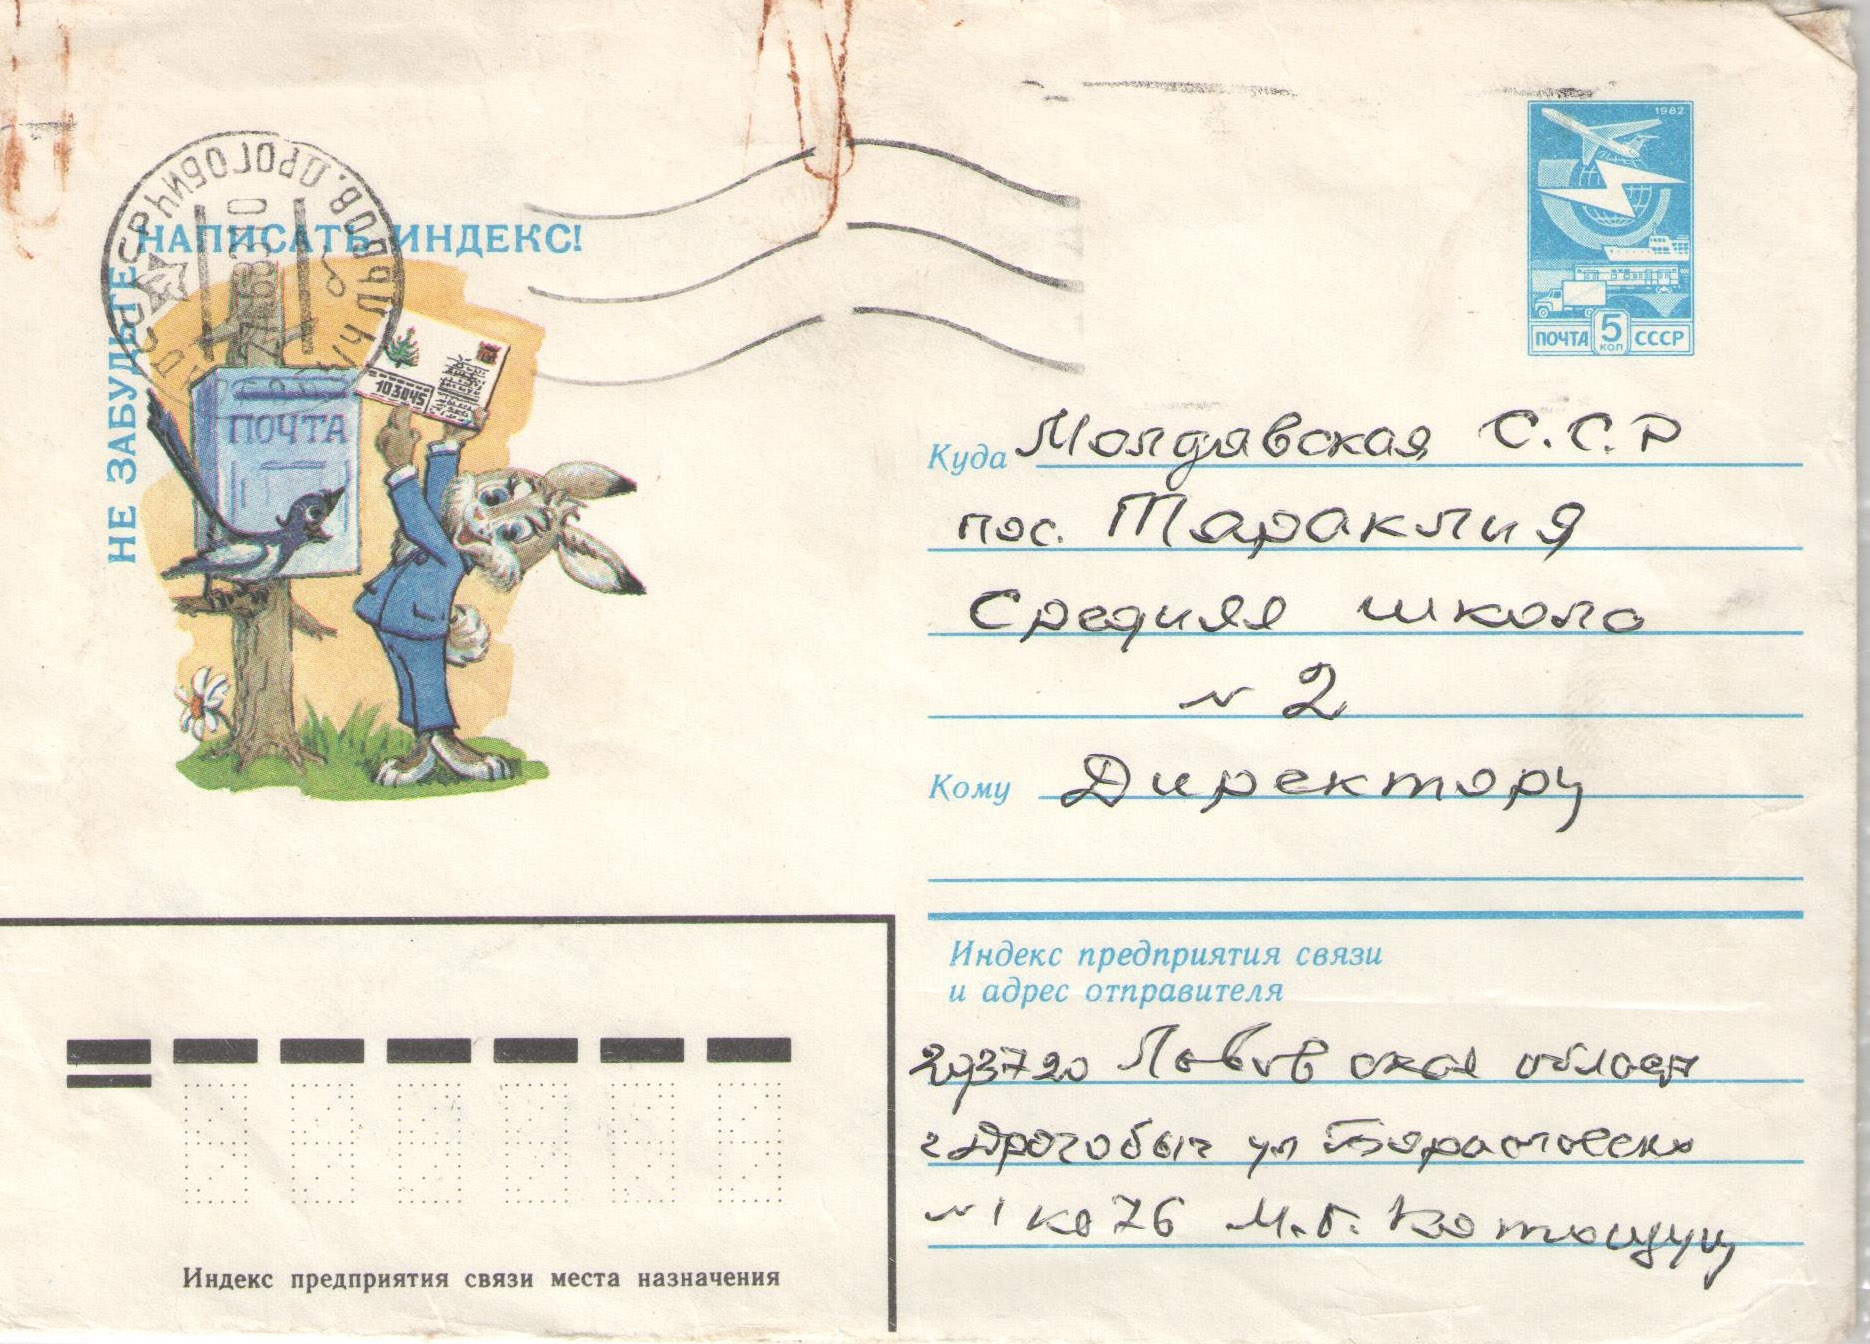 НЕ ЗАБУДЬТЕ
НАПИСАТЬ ИНДЕКС!
ПОЧТА
103045
1982
ПОЧТА 5 КОП СССР
Куда Молдавская С.С.Р
пос. Тараклия
Средняя школа
N 2
Кому Директору
Индекс предприятия связи
и адрес отправителя
293720 Львовская област
г Дрогобыч ул
N 1 кв 76 М.Г.
Индекс предприятия связи места назначения